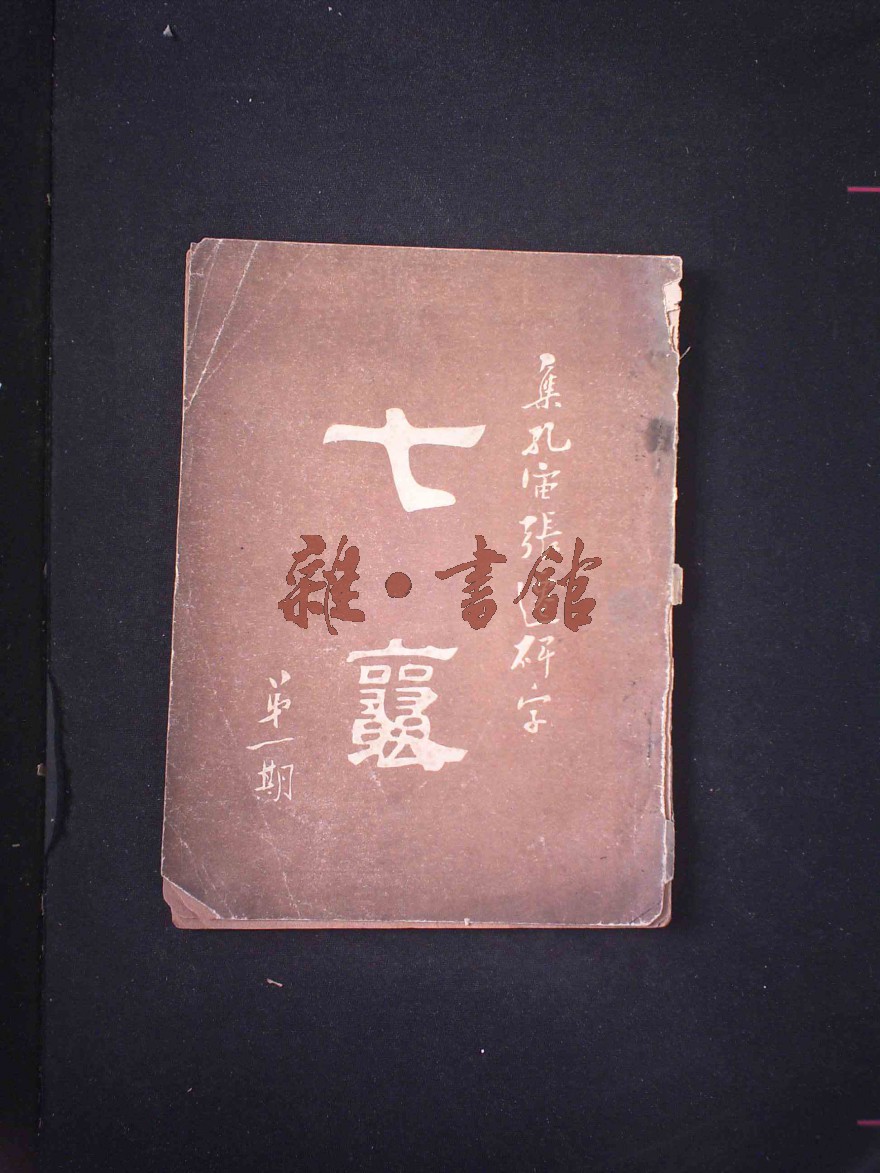 集孔宙張遷碑字
七襄
第一期
雜·書館